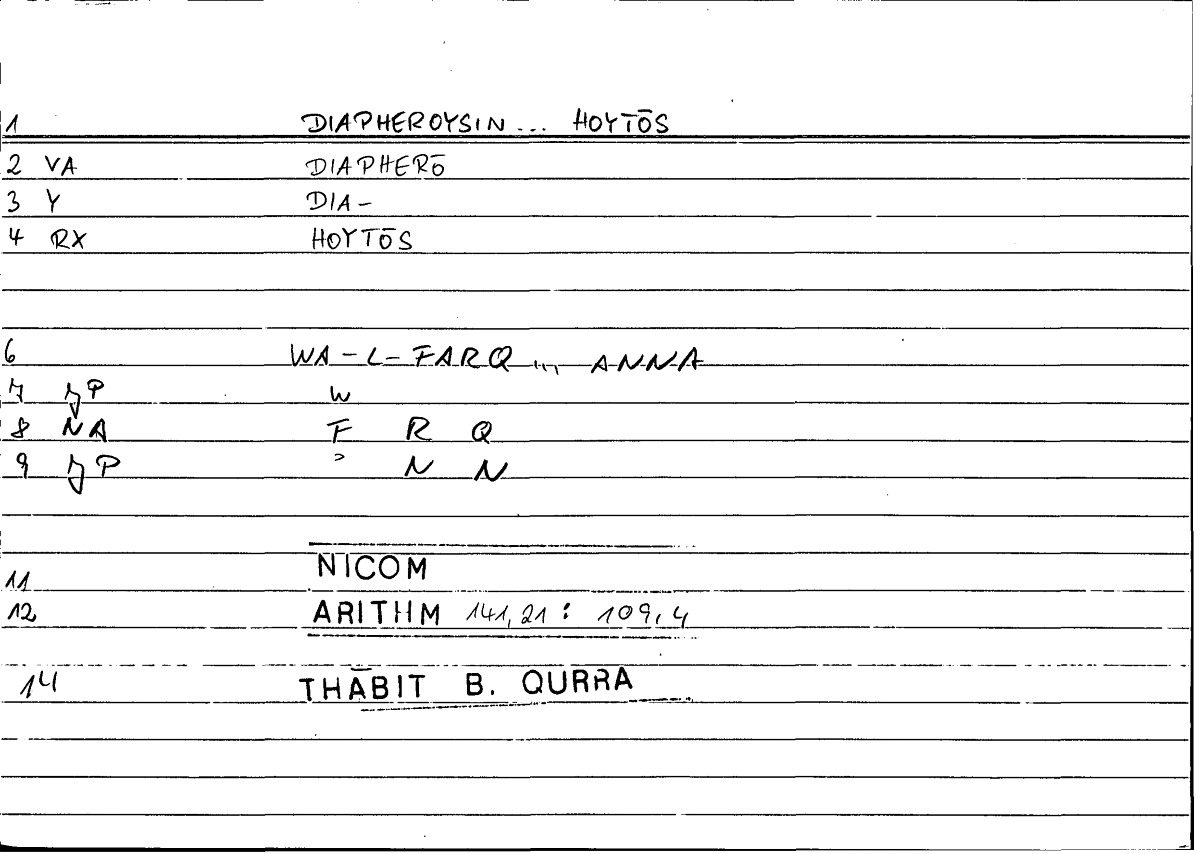 1 DIAPHEROYSIN ... HOYTŌS
2 VA DIAPHERŌ
3 Y DIA-
4 RX HOYTŌS
6 WA-L-FARQ ... ANNA
7 JP W
8 NA F R Q
9 JP ʾ N N
11 NICOM
12 ARITHM 141,21 : 109,4
14 THĀBIT B. QURRA